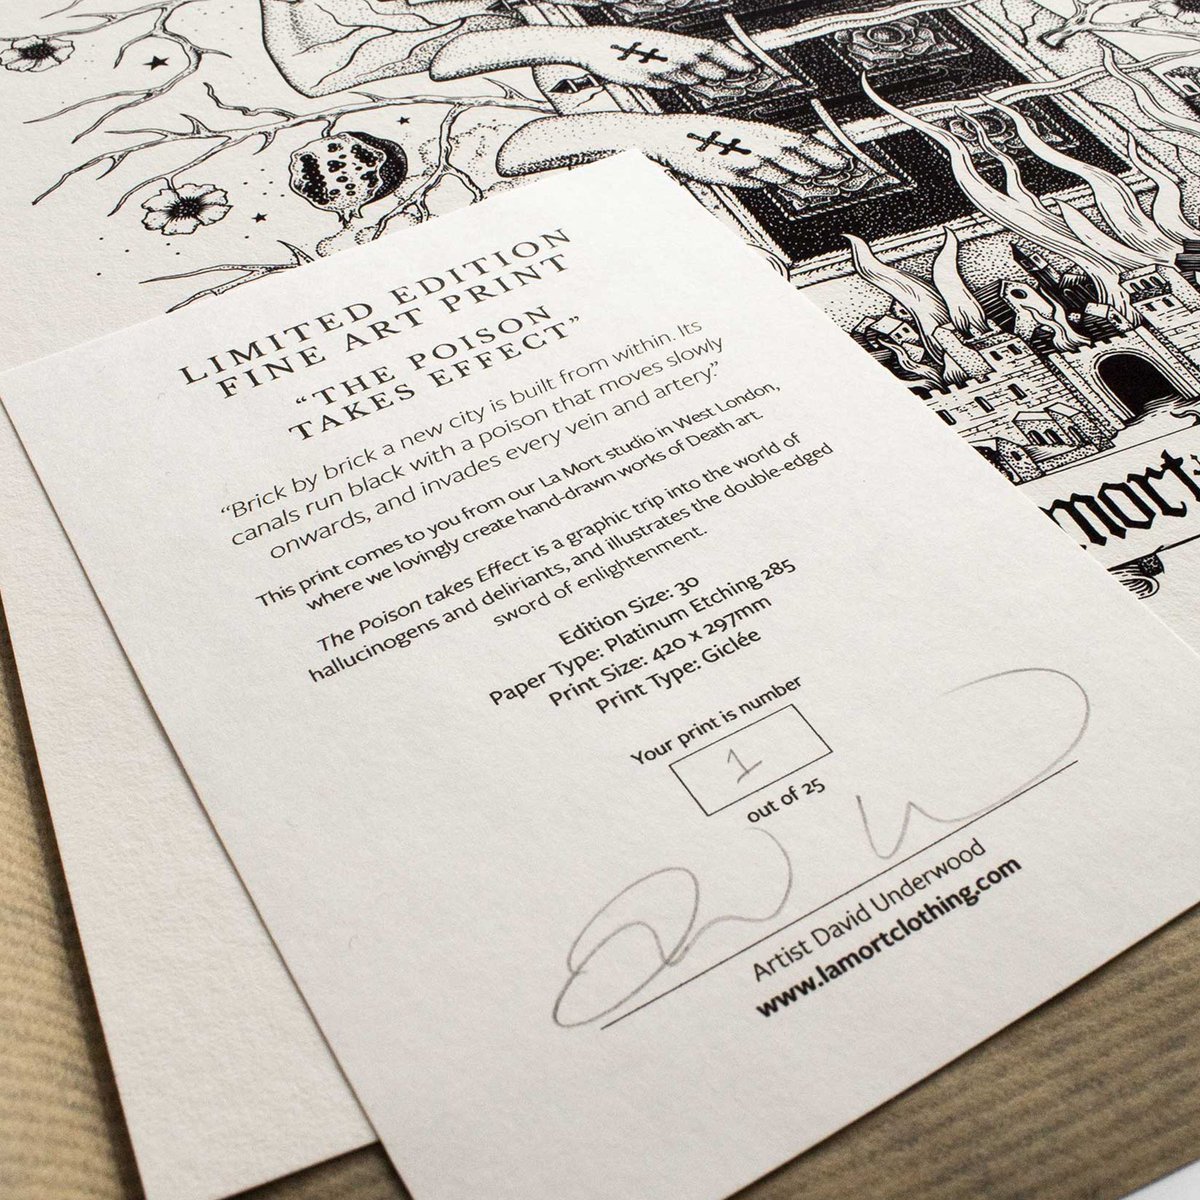 LIMITED EDITION
FINE ART PRINT
“THE POISON
TAKES EFFECT”
“Brick by brick a new city is built from within. Its
canals run black with a poison that moves slowly
onwards, and invades every vein and artery”
This print comes to you from our La Mort studio in West London,
where we lovingly create hand-drawn works of Death art.
The Poison takes Effect is a graphic trip into the world of
hallucinogens and deliriants, and illustrates the double-edged
sword of enlightenment.
Edition Size: 30
Paper Type: Platinum Etching 285
Print Size: 420 x 297mm
Print Type: Giclée
Your print is number
1
out of 25
Artist David Underwood
www.lamortclothing.com
mort